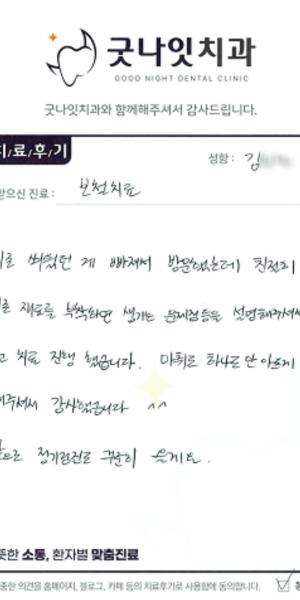 굿나잇치과
GOOD NIGHT DENTAL CLINIC
굿나잇치과와 함께해주셔서 감사드립니다.
치/료/후/기
성함 : 김
받으신 진료 : 보철치료
씌웠던 게 빠져서 방문했는데 친절히
재료를 부착하면 생기는 문제점등을 설명해주셔서
고 치료 진행 했습니다. 마취도 하나도 안아프게
해주셔서 감사했습니다 ^^
앞으로 정기검진도 꾸준히 올게요.
뜻한 소통, 환자별 맞춤진료
중한 의견을 홈페이지, 블로그, 카페 등의 치료후기로 사용함에 동의합니다.